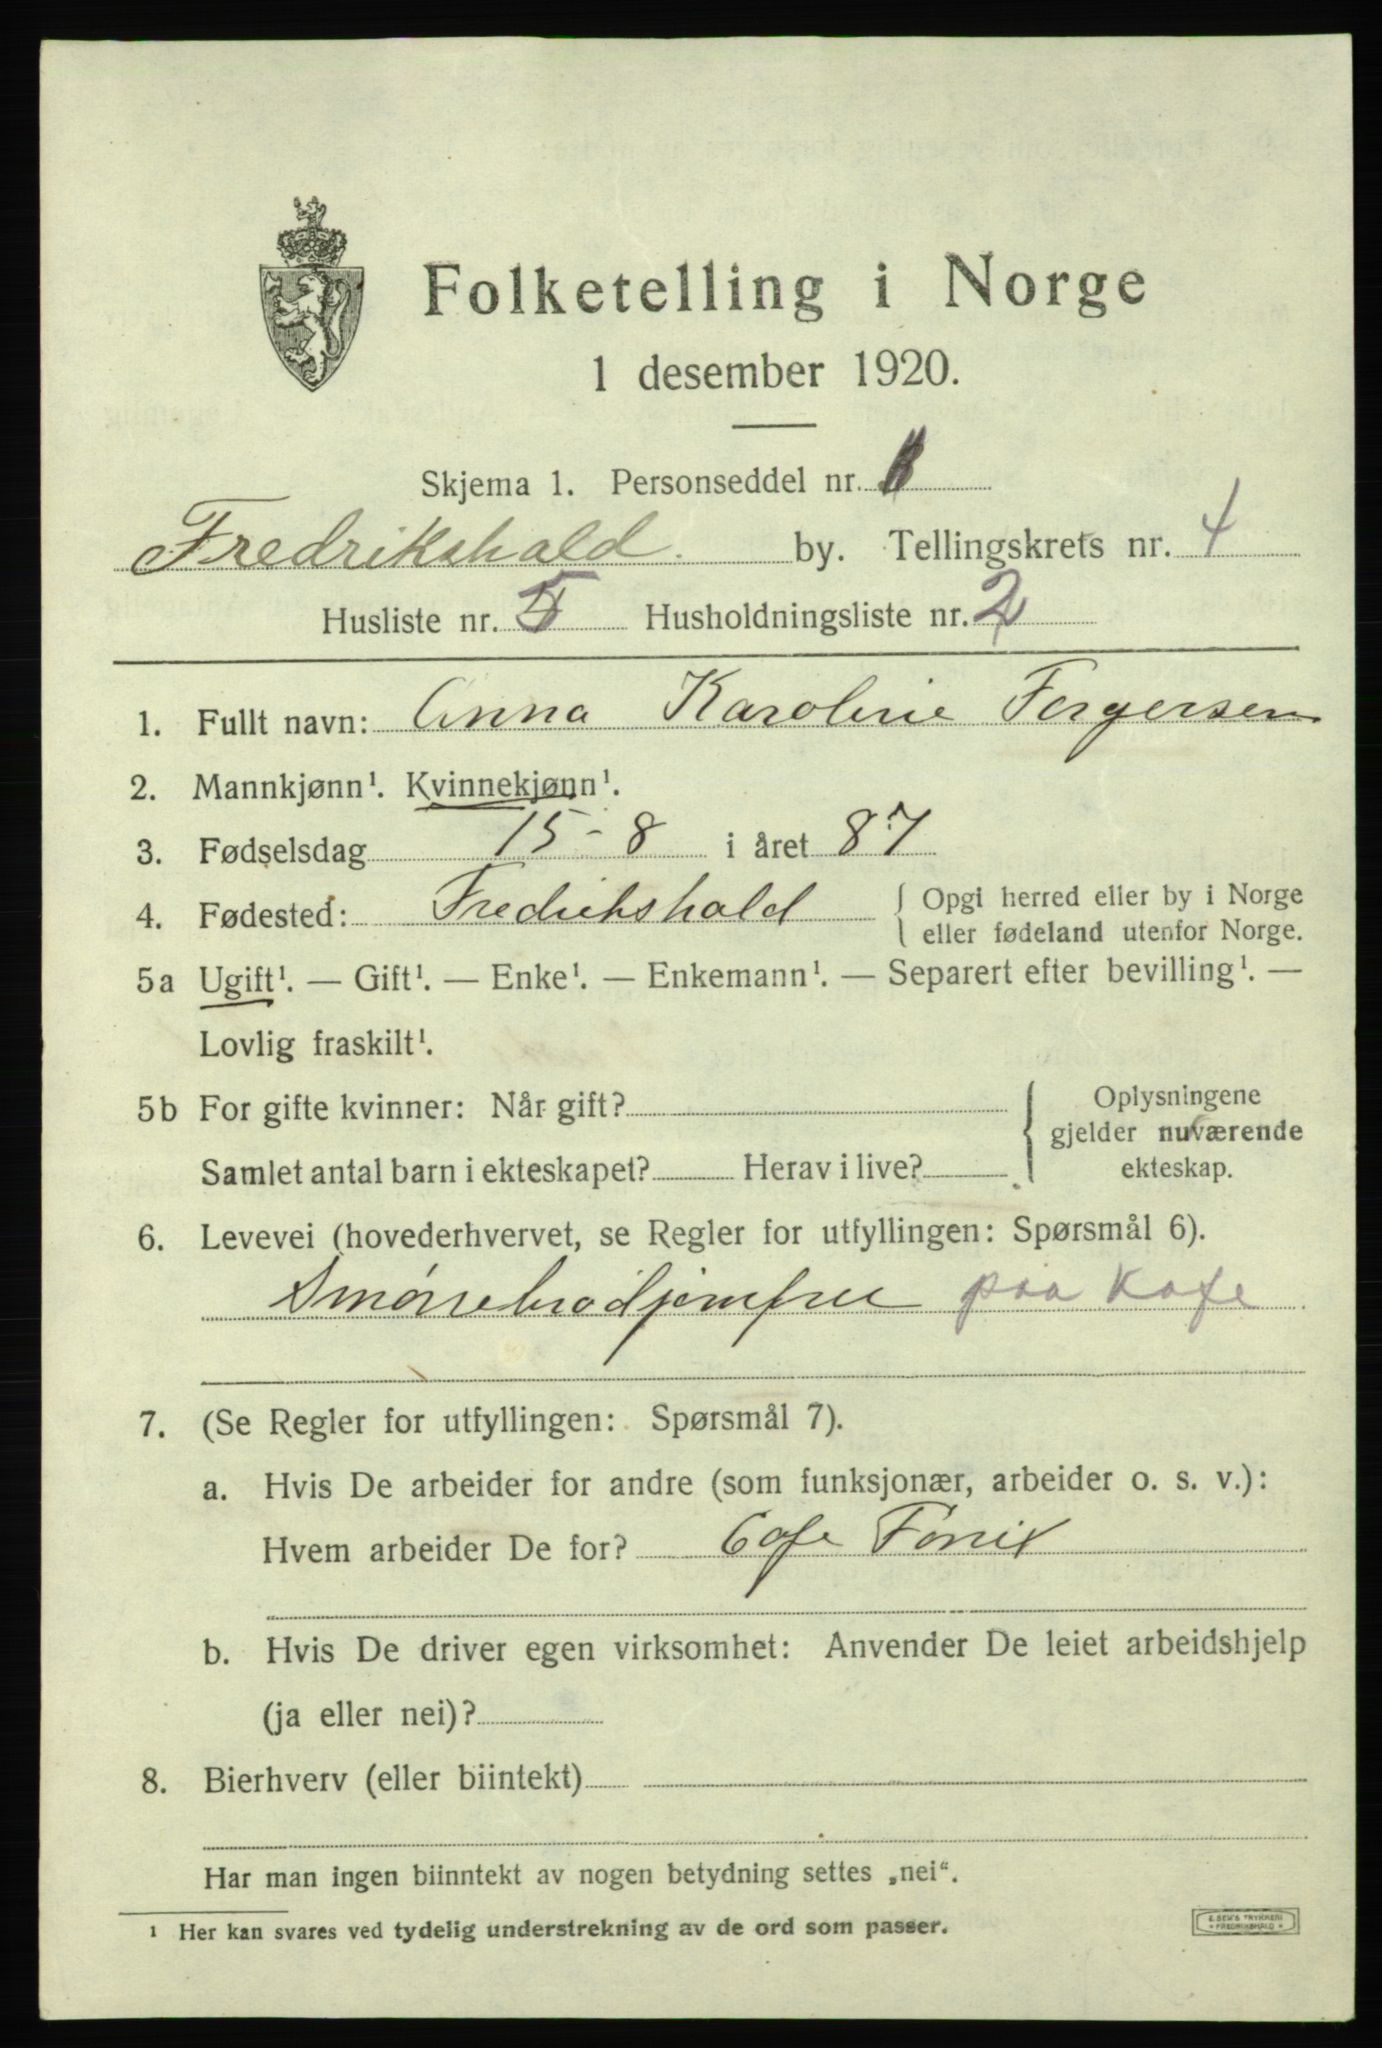 Folketelling i Norge
1 desember 1920.
Skjema 1. Personseddel nr.
Fredrikshald. by. Tellingskrets nr. 4
Husliste nr. 5 Husholdningsliste nr. 2
1. Fullt navn: Anna Karoline Torgersen
2. Mannkjønn¹. Kvinnekjønn¹.
3. Fødselsdag 15-8 i året 87
4. Fødested: Fredrikshald { Opgi herred eller by i Norge
eller fødeland utenfor Norge.
5a Ugift¹. — Gift¹. — Enke¹. — Enkemann¹. — Separert efter bevilling¹. —
Lovlig fraskilt¹.
5b For gifte kvinner: Når gift? { Oplysningene
gjelder nuværende
Samlet antal barn i ekteskapet? Herav i live? ekteskap.
6. Levevei (hovederhvervet, se Regler for utfyllingen: Spørsmål 6).
Smørrebrødjomfru paa Kafe
7. (Se Regler for utfyllingen: Spørsmål 7).
a. Hvis De arbeider for andre (som funksjonær, arbeider o. s. v.):
Hvem arbeider De for? Cafe Fønix
b. Hvis De driver egen virksomhet: Anvender De leiet arbeidshjelp
(ja eller nei)?
8. Bierhverv (eller biintekt)
Har man ingen biinntekt av nogen betydning settes „nei“.
¹ Her kan svares ved tydelig understrekning av de ord som passer.
E. SEM'S TRYKKERI
FREDRIKSHALD